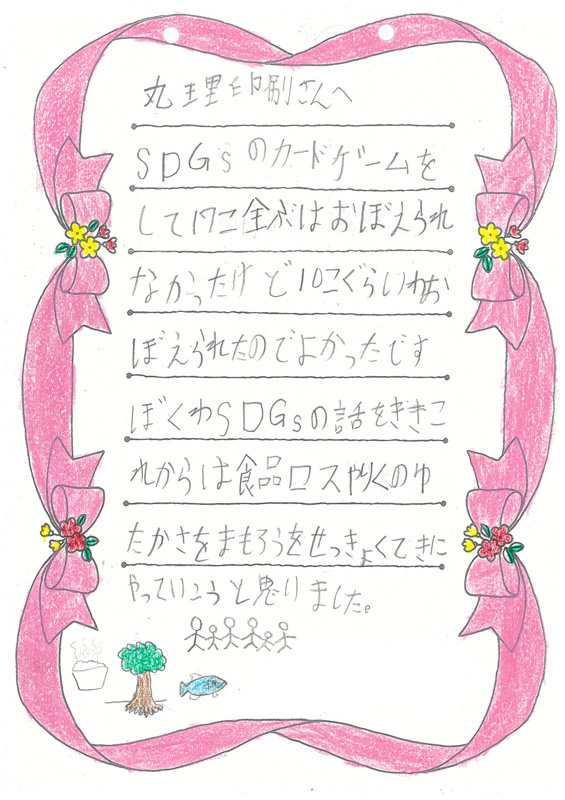 丸理印刷さんへ
SDGsのカードゲームを
して17こ全ぶはおぼえられ
なかったけど10こぐらいわお
ぼえられたのでよかったです
ぼくわSDGsの話をききこ
れからは食品ロスやりくのゆ
たかさをまもろうをせっきょくてきに
やっていこうと思いました。